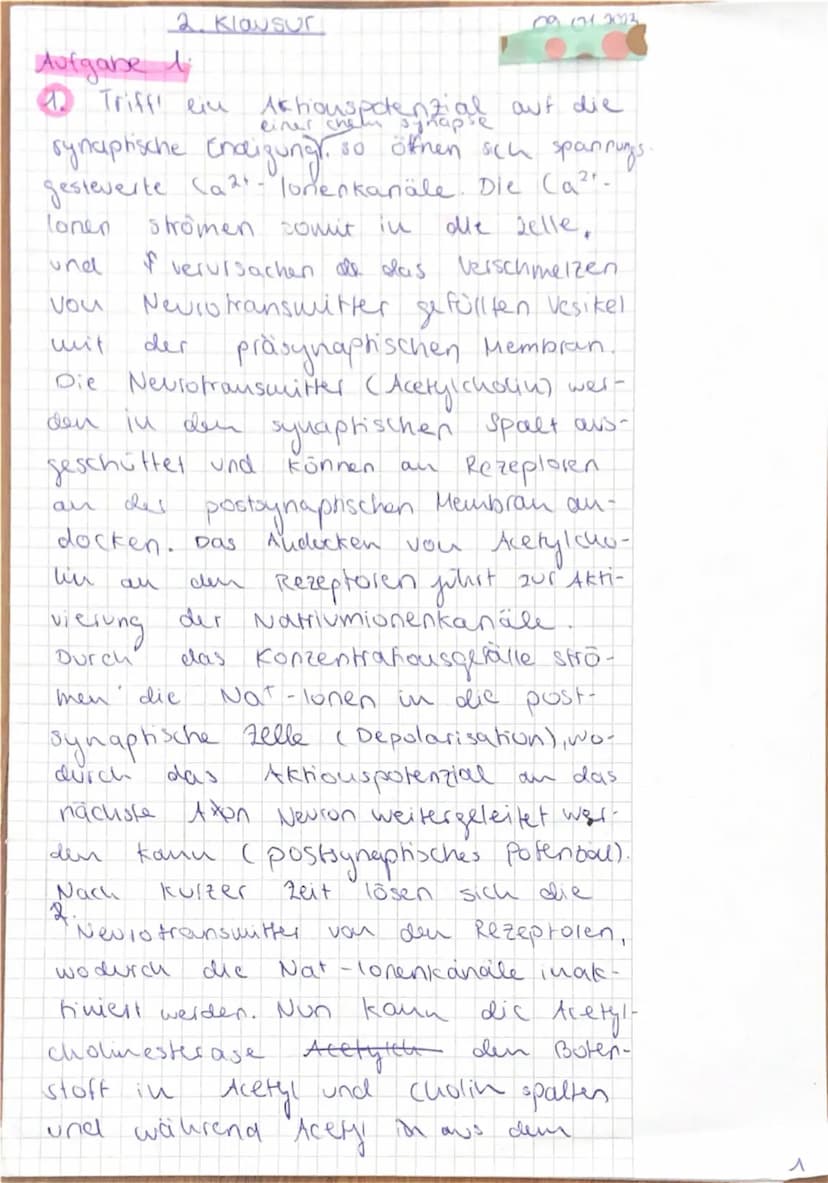 2. Klausur
09.01.2023
Aufgabe 1:
1. Trifft ein Aktionspotenzial auf die
einer chem synapse
synaptische Endigung, so öffnen sich spannungs-
gesteuerte Ca²⁺-Ionenkanäle. Die Ca²⁺-
Ionen strömen somit in die Zelle,
und verursachen das Verschmelzen
von Neurotransmitter gefüllten Vesikel
mit der präsynaptischen Membran.
Die Neurotransmitter (Acetylcholin) wer-
den in den synaptischen Spalt aus-
geschüttet und können an Rezeptoren
an der postsynaptischen Membran an-
docken. Das Andocken von Acetylcho-
lin an den Rezeptoren führt zur Akti-
vierung der Natriumionenkanäle.
Durch das Konzentrationsgefälle strö-
men die Na⁺-Ionen in die post-
synaptische Zelle (Depolarisation), wo-
durch das Aktionspotenzial an das
nächste Axon Neuron weitergeleitet wer-
den kann (postsynaptisches Potenzial).
Nach kurzer Zeit lösen sich die
2.
Neurotransmitter von den Rezeptoren,
wodurch die Na⁺-Ionenkanäle inak-
tiviert werden. Nun kann die Acetyl-
cholinesterase Acetylch den Boten-
stoff in Acetyl und Cholin spalten
und während Acetyl in aus dem
1